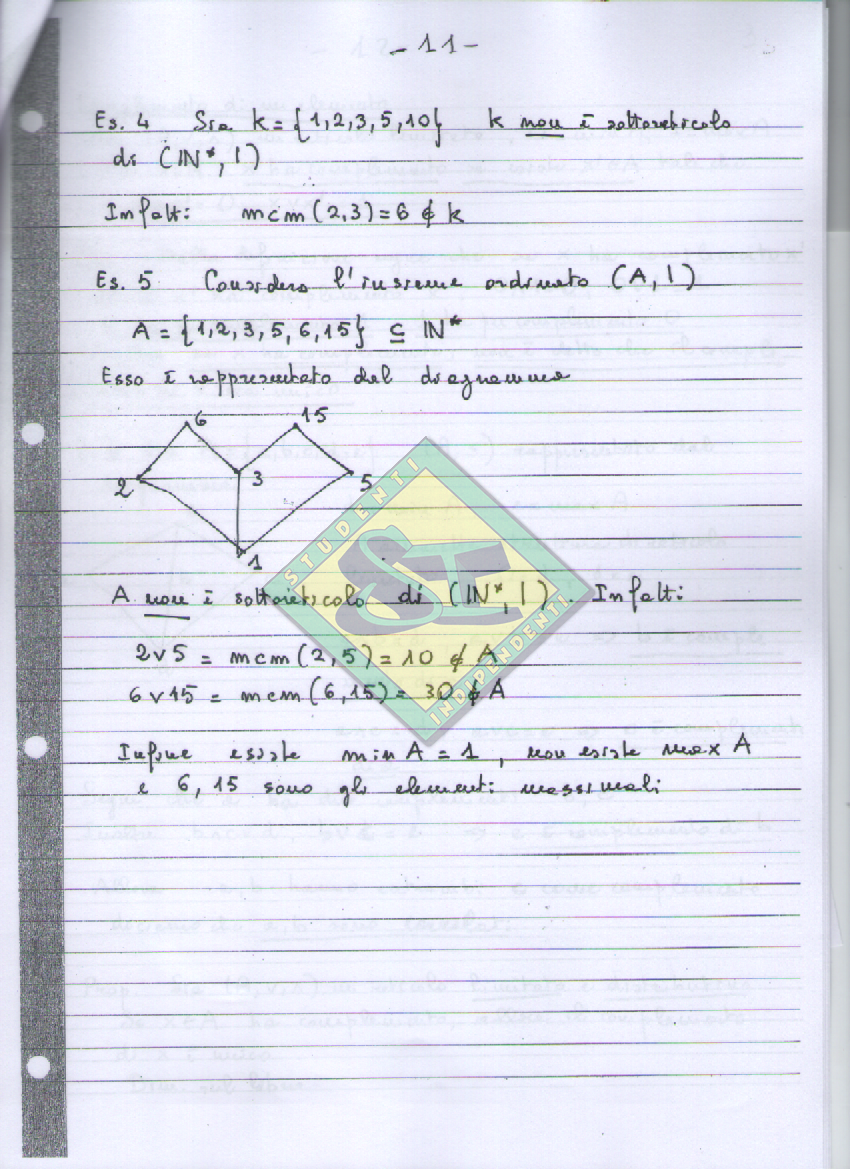 - 11 -
Es. 4 Sia k = {1,2,3,5,10} k non è sottoreticolo
di (IN*, |)
Infatti: mcm (2,3) = 6 ∉ k
Es. 5 Considero l'insieme ordinato (A, |)
A = {1,2,3,5,6,15} ⊆ IN*
Esso è rappresentato dal diagramma
6 15
2 3 5
1
A non è sottoreticolo di (IN*, |). Infatti:
2∨5 = mcm (2,5) = 10 ∉ A
6∨15 = mcm (6,15) = 30 ∉ A
Infine esiste min A = 1, non esiste max A
e 6, 15 sono gli elementi massimali
STUDENTI
SI
INDIPENDENTI